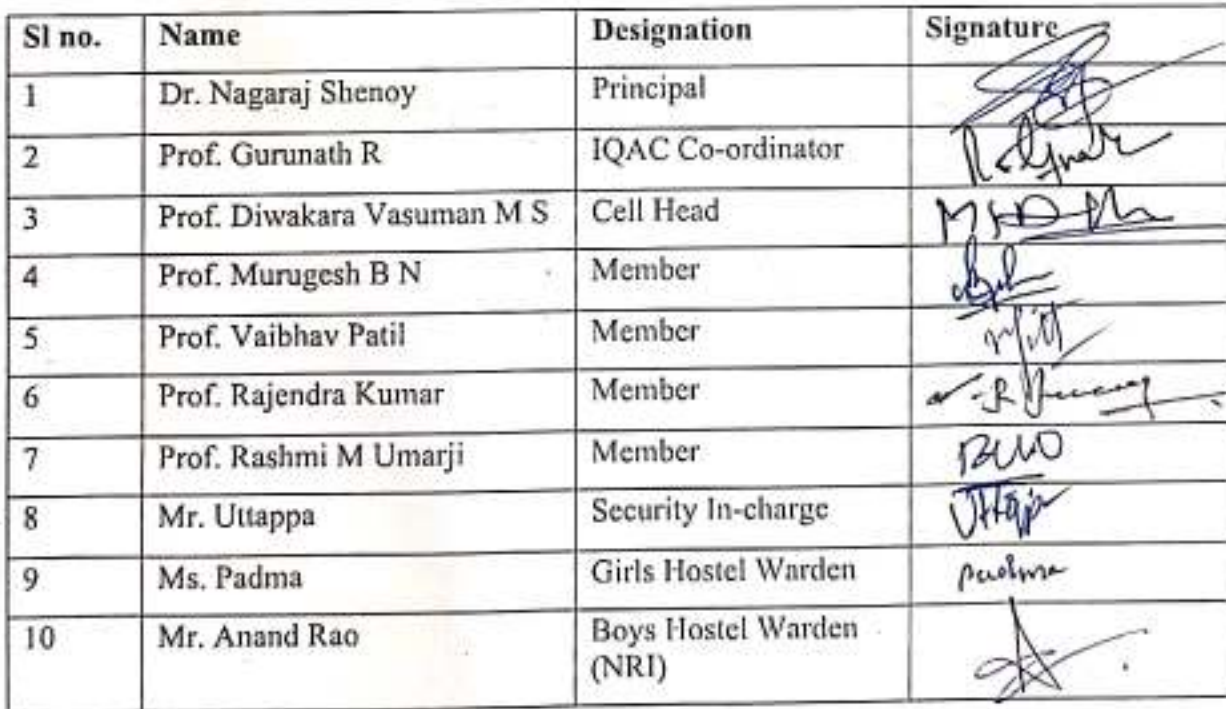 Sl no. Name Designation Signature
1 Dr. Nagaraj Shenoy Principal
2 Prof. Gurunath R IQAC Co-ordinator
3 Prof. Diwakara Vasuman M S Cell Head
4 Prof. Murugesh B N Member
5 Prof. Vaibhav Patil Member
6 Prof. Rajendra Kumar Member
7 Prof. Rashmi M Umarji Member
8 Mr. Uttappa Security In-charge
9 Ms. Padma Girls Hostel Warden padma
10 Mr. Anand Rao Boys Hostel Warden
(NRI)